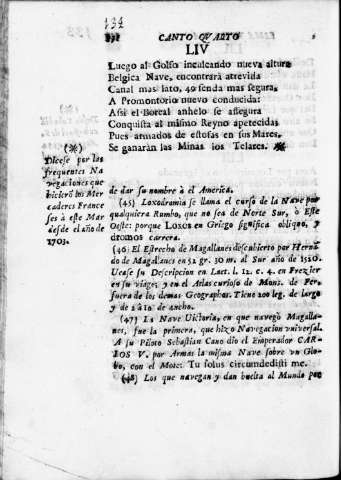 134
CANTO QVARTO
LIV
Luego al Golfo inculcando nueva altura
Belgica Nave, encontrarà atrevida
Canal mas lato, ò senda mas segura,
A Promontorio nuevo conducida:
Assi el Boreal anhelo se assegura
Conquista al mismo Reyno apetecida;
Pues armados de estofas en sus Mares,
Se ganaràn las Minas los Telares. (*)
(*)
Dicese por las
frequentes Na
vegaciones que
hicieron los Mer
caderes France
ses à este Mar
desde el año de
1703.
de dar su nombre à el America.
(45) Loxodromia se llama el curso de la Nave por
qualquiera Rumbo, que no sea de Norte Sur, ò Este
Oeste: porque Loxos en Griego significa obliquo, y
dromos carrera.
(46 El Estrecho de Magallanes descubierto por Hernã
do de Magallanes en 52 gr. 30 m. al Sur año de 1520.
Vease su Descripcion en Laet. l. 12. c. 4. en Frezier
en su viage; y en el Atlas curioso de Mons. de Fer,
fuera de los demas Geographos. Tiene 200 leg. de largo
y de 2 à 10 de ancho.
(47) La Nave Victoria, en que navegò Magalla-
nes, fue la primera, que hizo Navegacion universal.
A su Piloto Sebastian Cano dio el Emperador CAR-
LOS V. por Armas la misma Nave sobre un Glo-
bo, con el Mote: Tu solus circumdedisti me.
(48) Los que navegan y dan buelta al Mundo por